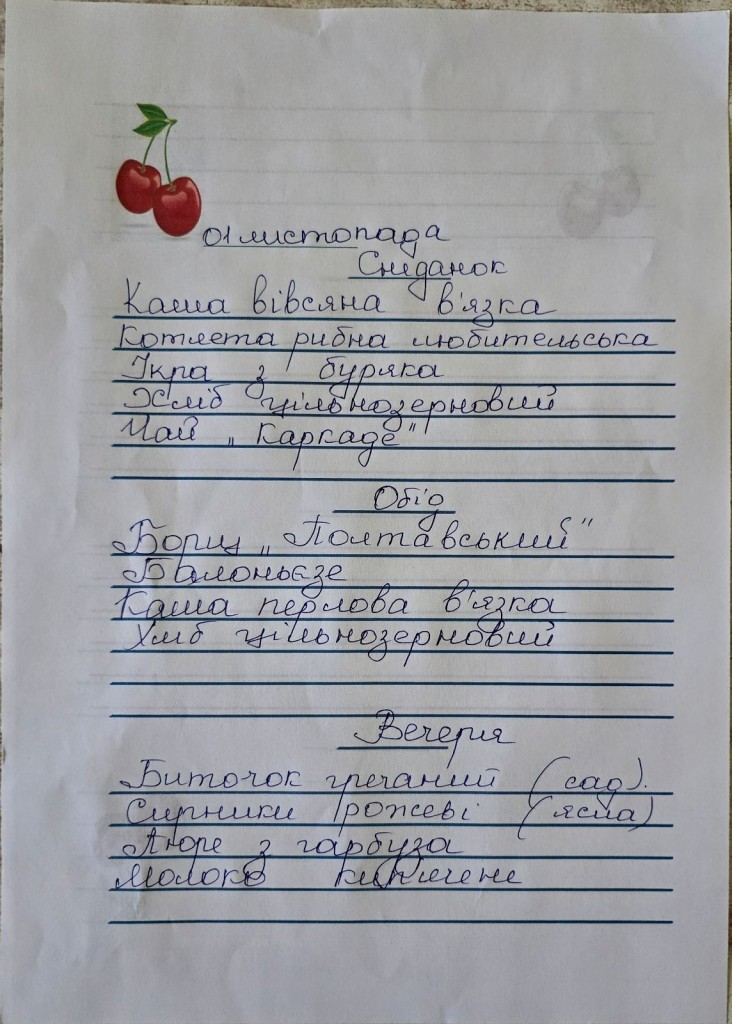 01 листопада
Сніданок
Каша вівсяна в'язка
Котлета рибна любительська
Ікра з буряка
Хліб цільнозерновий
Чай „Каркаде"
Обід
Борщ „Полтавський"
Балоньєзе
Каша перлова в'язка
Хліб цільнозерновий
Вечеря
Биточок гречаний (сад).
Сирники рожеві (ясла)
Пюре з гарбуза
Молоко кип'ячене